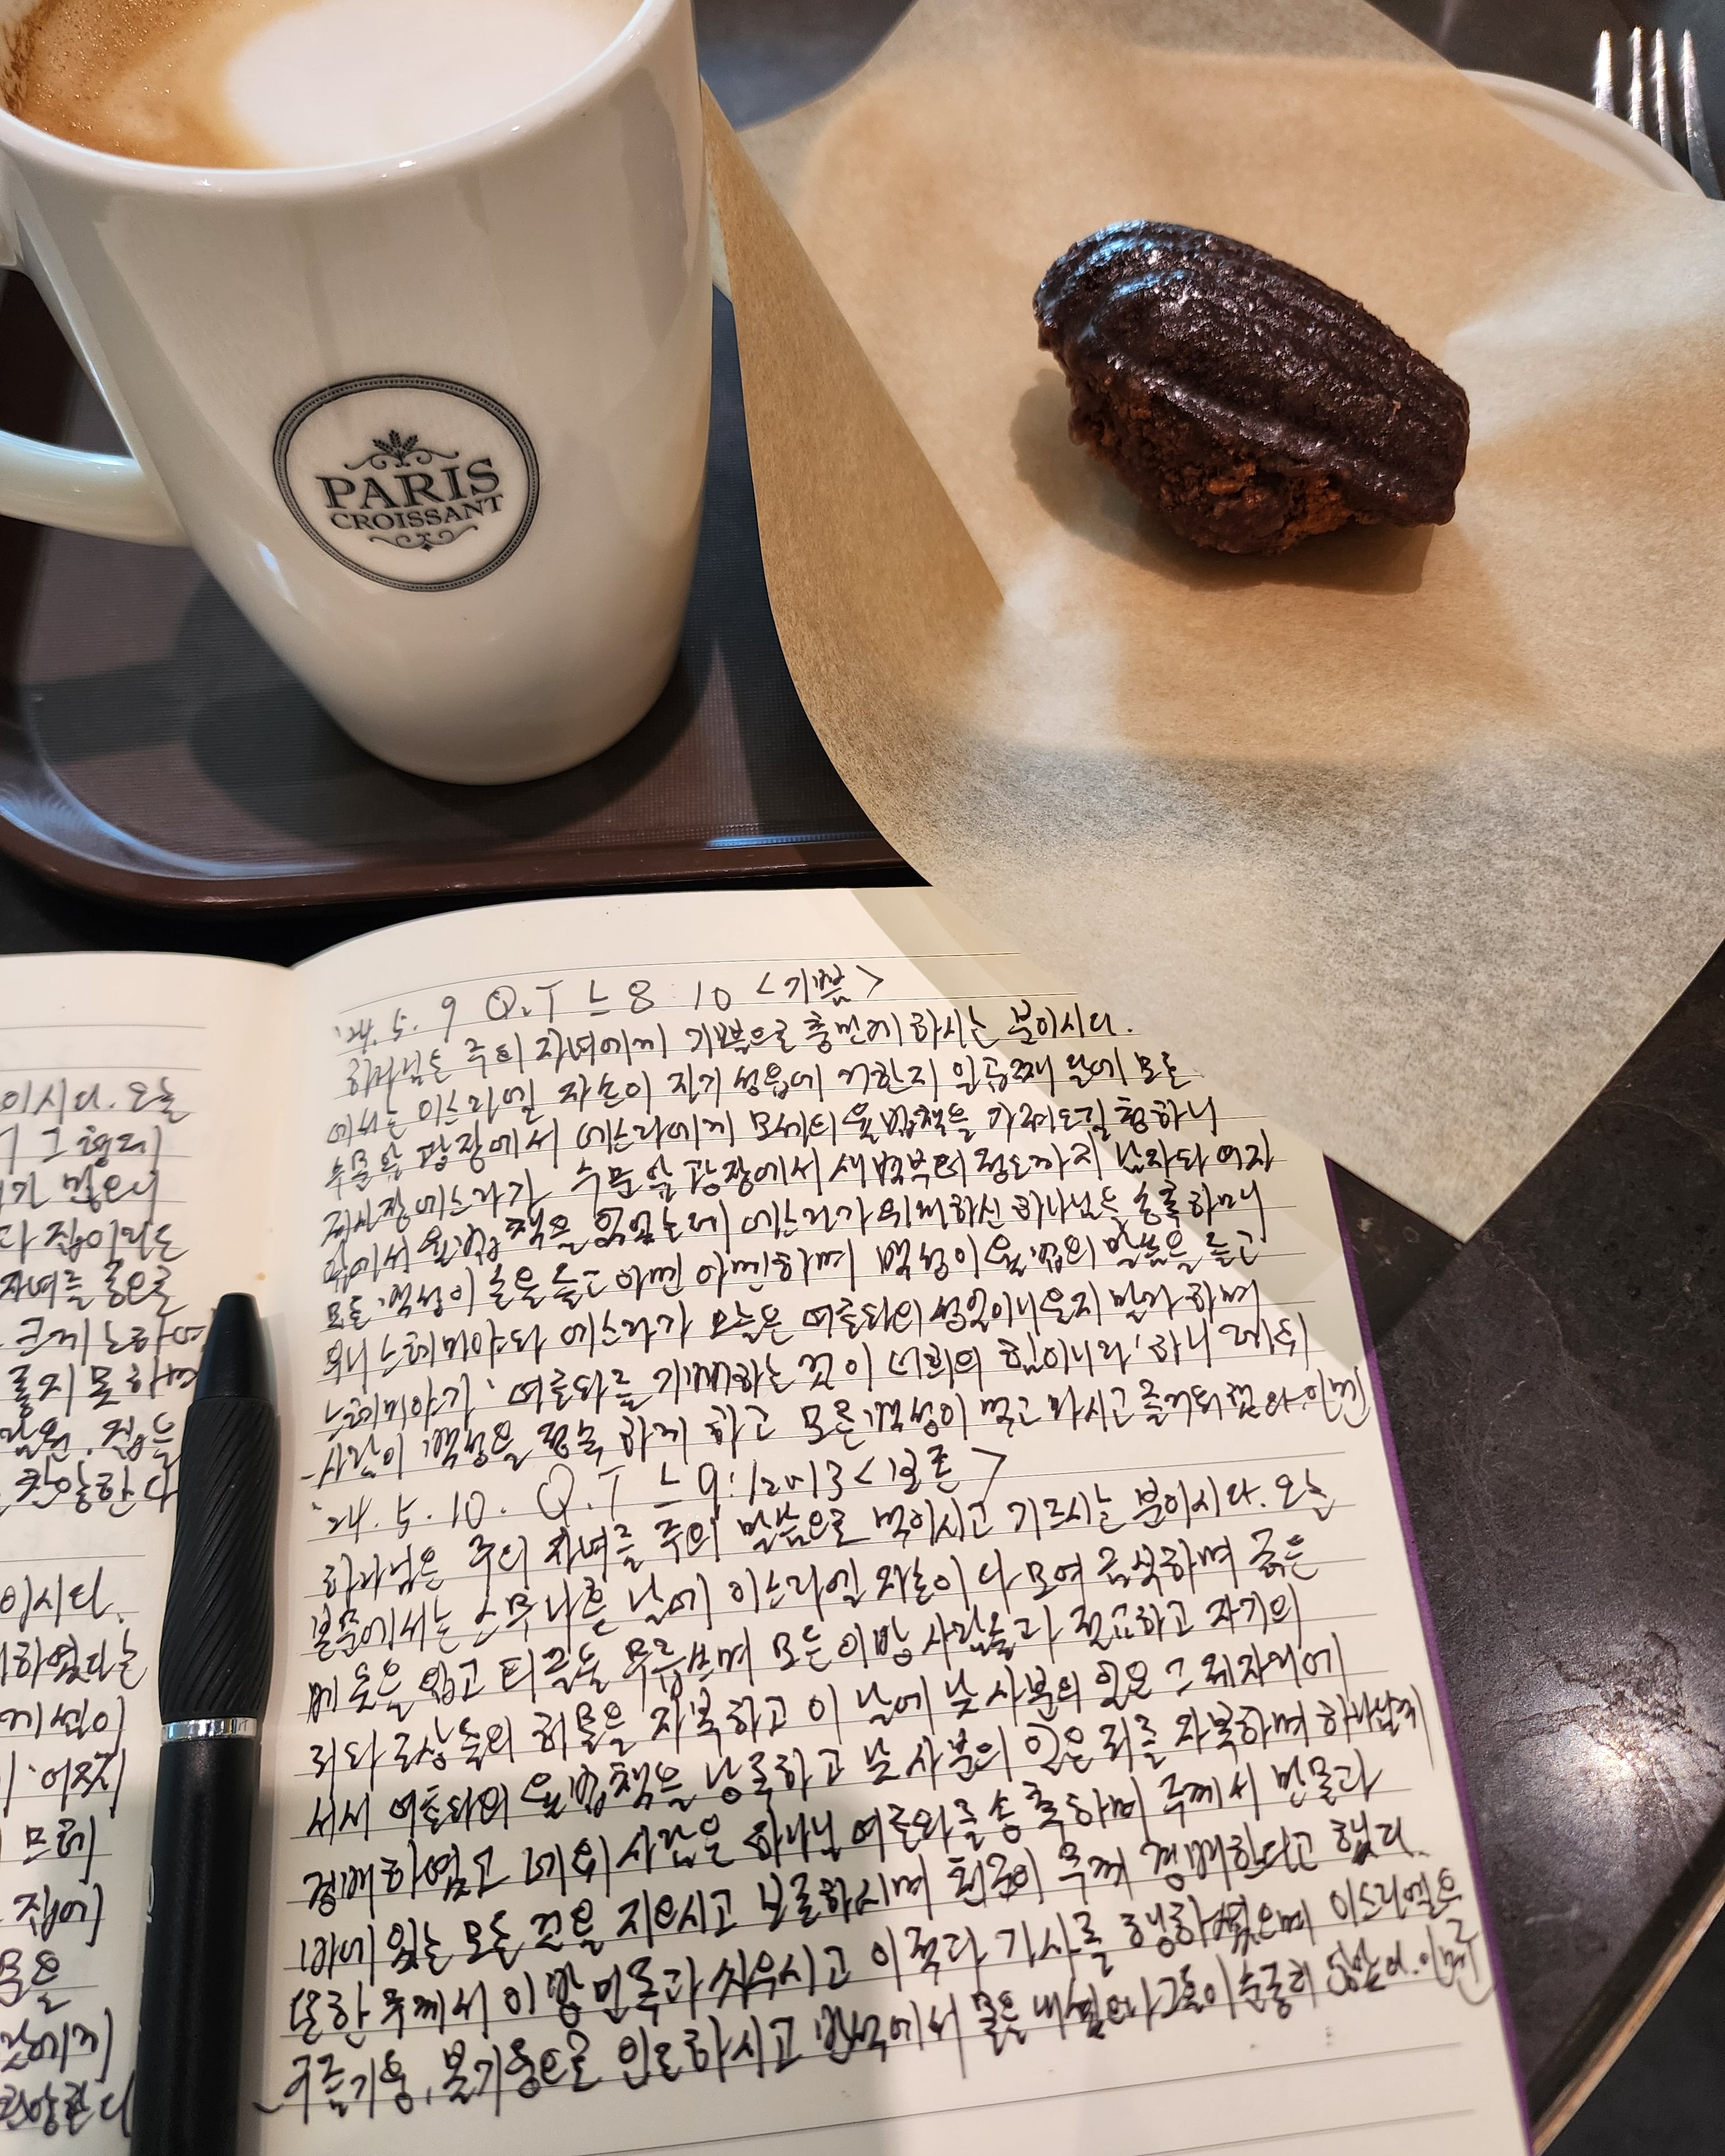 PARIS
CROISSANT
'24. 5. 9 Q.T 느 8:10 <기쁨>
하나님은 주의 자녀에게 기쁨으로 충만케 하시는 분이시다.
에서는 이스라엘 자손이 자기 성읍에 거한지 일곱째 달에 모든
수문 앞 광장에서 에스라에게 모세의 율법책을 가져오길 청하니
제사장 에스라가 수문 앞 광장에서 새벽부터 정오까지 남자와 여자
앞에서 율법책을 읽었는데 에스라가 위대하신 하나님을 송축하매
모든 백성이 손을 들고 아멘 아멘하며 백성이 율법의 말씀을 듣고
우니 느헤미야와 에스라가 오늘은 여호와의 성일이니 울지 말라 하며
느헤미야가 '여호와를 기뻐하는 것이 너희의 힘이니라' 하니 레위
사람이 백성을 정숙하게 하고 모든 백성이 먹고 마시고 즐거워
'24. 5. 10. Q.T 느 9:12 <보존>
하나님은 주의 자녀를 주의 말씀으로 먹이시고 기르시는 분이시다. 오늘
본문에서는 스무나흗 날에 이스라엘 자손이 다 모여 금식하며 굵은
베 옷을 입고 티끌을 무릅쓰며 모든 이방 사람들과 절교하고 자기의
죄와 조상들의 허물을 자복하고 이 날에 낮 사분의 일은 그 제자리에
서서 여호와의 율법책을 낭독하고 낮 사분의 일은 죄를 자복하며 하나님께
경배하였고 레위 사람은 하나님 여호와를 송축하며 주께서 만물과
있는 모든 것을 지으시고 보존하시며 천군이 주께 경배한다고 했다.
또한 주께서 이방 민족과 싸우시고 이적과 기사를 행하였으며 이스라엘을
구름기둥, 불기둥으로 인도하시고 반석에서 물을 그들이
이시다. 오늘
그 형제
많으니
자녀를
크게 노하여
듣지 못하며
찬양한다
이시다.
하였다는
'어찌
집에